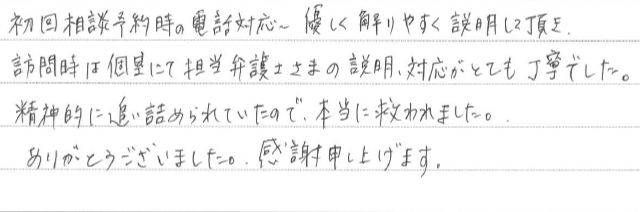 初回相談予約時の電話対応〜優しく解りやすく説明して頂き、
訪問時は個室にて担当弁護士さまの説明、対応がとても丁寧でした。
精神的に追い詰められていたので、本当に救われました。
ありがとうございました。感謝申し上げます。